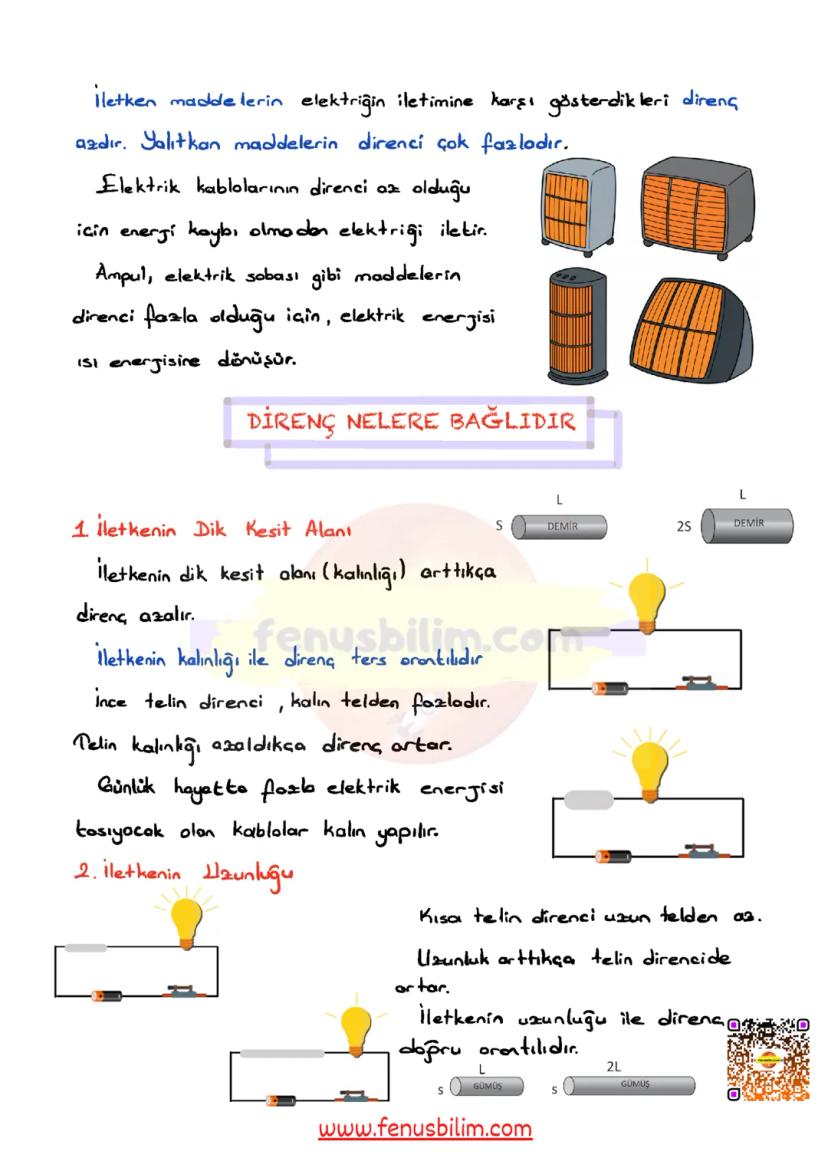 İletken maddelerin elektriğin iletimine karşı gösterdikleri direnç
azdır. Yalıtkan maddelerin direnci çok fazladır.
Elektrik kablolarının direnci az olduğu
için energi kaybı olmadan elektriği iletir.
Ampul, elektrik sobası gibi maddelerin
direnci fazla olduğu için, elektrik energisi
ısı energisine dönüşür.
DİRENÇ NELERE BAĞLIDIR
L
L
S
DEMİR
2S
DEMİR
1. İletkenin Dik Kesit Alanı
İletkenin dik kesit alanı (kalınlığı) arttıkça
direnç azalır.
fenusbilim.com
İletkenin kalınlığı ile direnç ters orantılıdır
İnce telin direnci , kalın telden fazladır.
Telin kalınlığı azaldıkça direnç artar.
Günlük hayatta fazla elektrik energisi
tasıyacak olan kablolar kalın yapılır.
2. İletkenin Uzunluğu
Kısa telin direnci uzun telden az.
Uzunluk arttıkça telin direncide
artar.
İletkenin uzunluğu ile direnç
doğru orantılıdır.
L
2L
S
GÜMÜŞ
S
GÜMÜŞ
www.fenusbilim.com